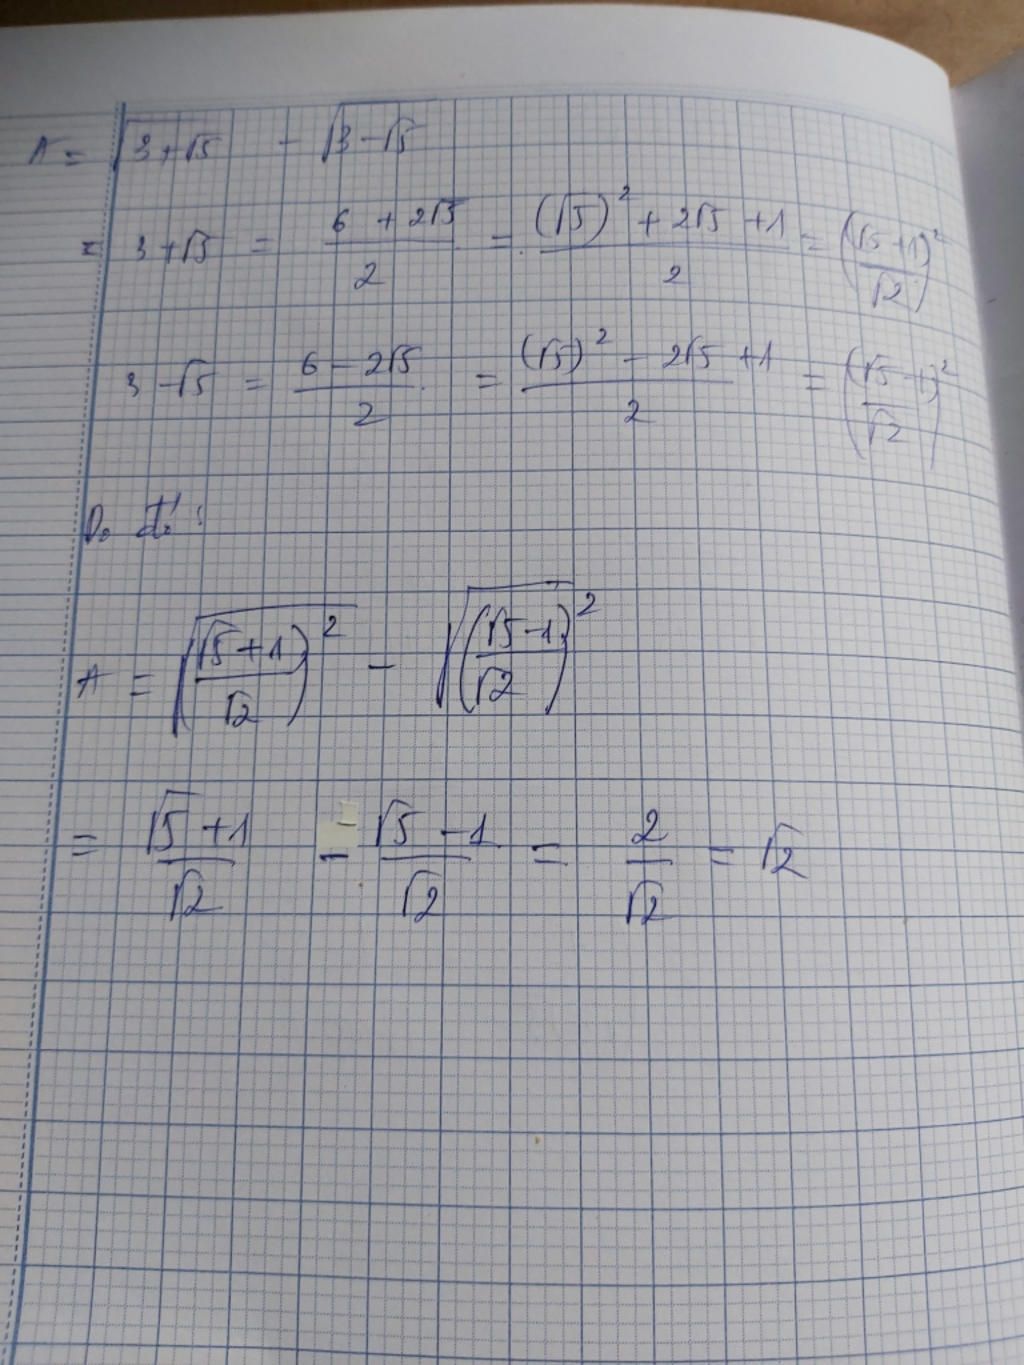 A = √(3+√5) - √(3-√5)
= 3+√5 = (6 + 2√5)/2 = ((√5)² + 2√5 + 1)/2 = ((√5+1)/√2)²
3 - √5 = (6 - 2√5)/2 = ((√5)² - 2√5 + 1)/2 = ((√5-1)/√2)²
Do đó :
A = √((√5+1)/√2)² - √((√5-1)/√2)²
= (√5+1)/√2 - (√5-1)/√2 = 2/√2 = √2